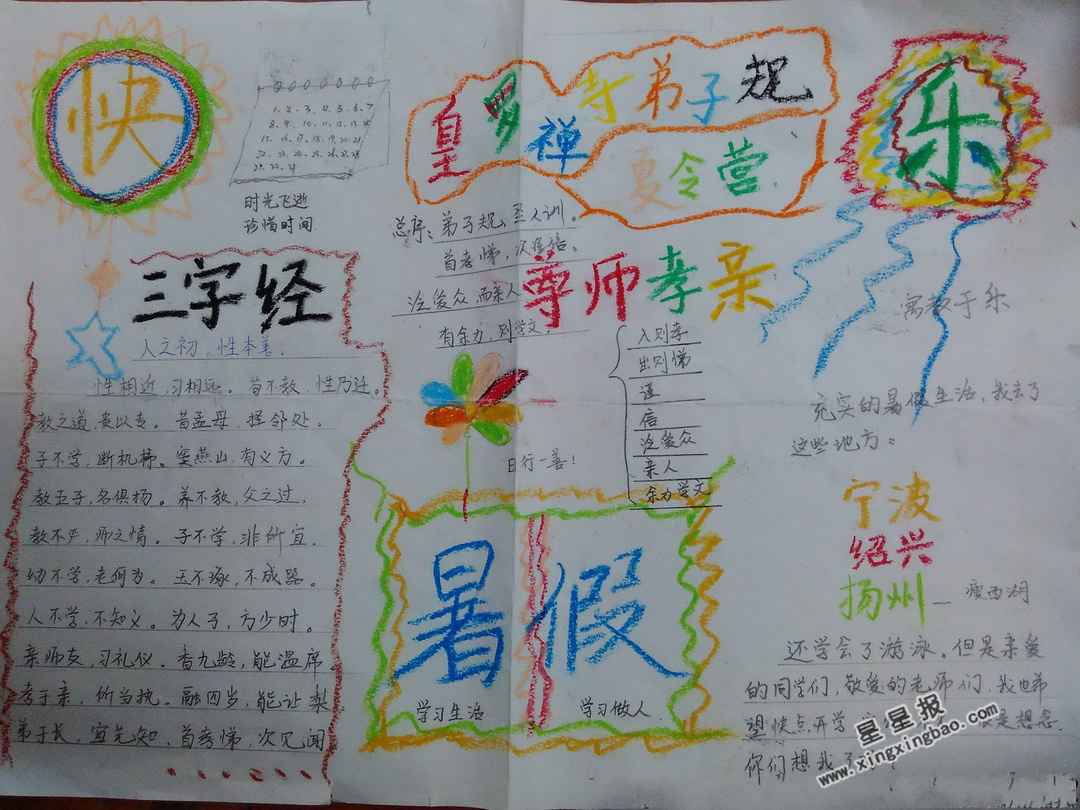 快
1. 2. 3. 4. 5. 6. 7
8. 9. 10. 11. 12. 13. 14
15. 16. 17. 18. 19. 20. 21
22. 23. 24. 25. 26. 27. 28
29. 30. 31
时光飞逝
珍惜时间
皇罗禅寺弟子规
夏令营
乐
总序:弟子规,圣人训。
首孝悌,次谨信。
泛爱众,而亲人
有余力,则学文
尊师孝亲
入则孝
出则悌
谨
信
泛爱众
亲人
余力学文
日行一善!
三字经
人之初,性本善.
性相近,习相远。苟不教,性乃迁。
教之道,贵以专。昔孟母,择邻处。
子不学,断机杼。窦燕山,有义方。
教五子,名俱扬。养不教,父之过,
教不严,师之惰。子不学,非所宜,
幼不学,老何为。玉不琢,不成器。
人不学,不知义。为人子,方少时。
亲师友,习礼仪。香九龄,能温席
孝于亲,所当执。融四岁,能让梨
弟于长,宜先知,首孝悌,次见闻
暑假
学习生活
学习做人
寓教于乐
充实的暑假生活,我去了
这些地方:
宁波
绍兴
扬州—瘦西湖
还学会了游泳。但是亲爱
的同学们,敬爱的老师们,我也希
望快点开学
是想念
你们想我了
星星报
www.xingxingbao.com